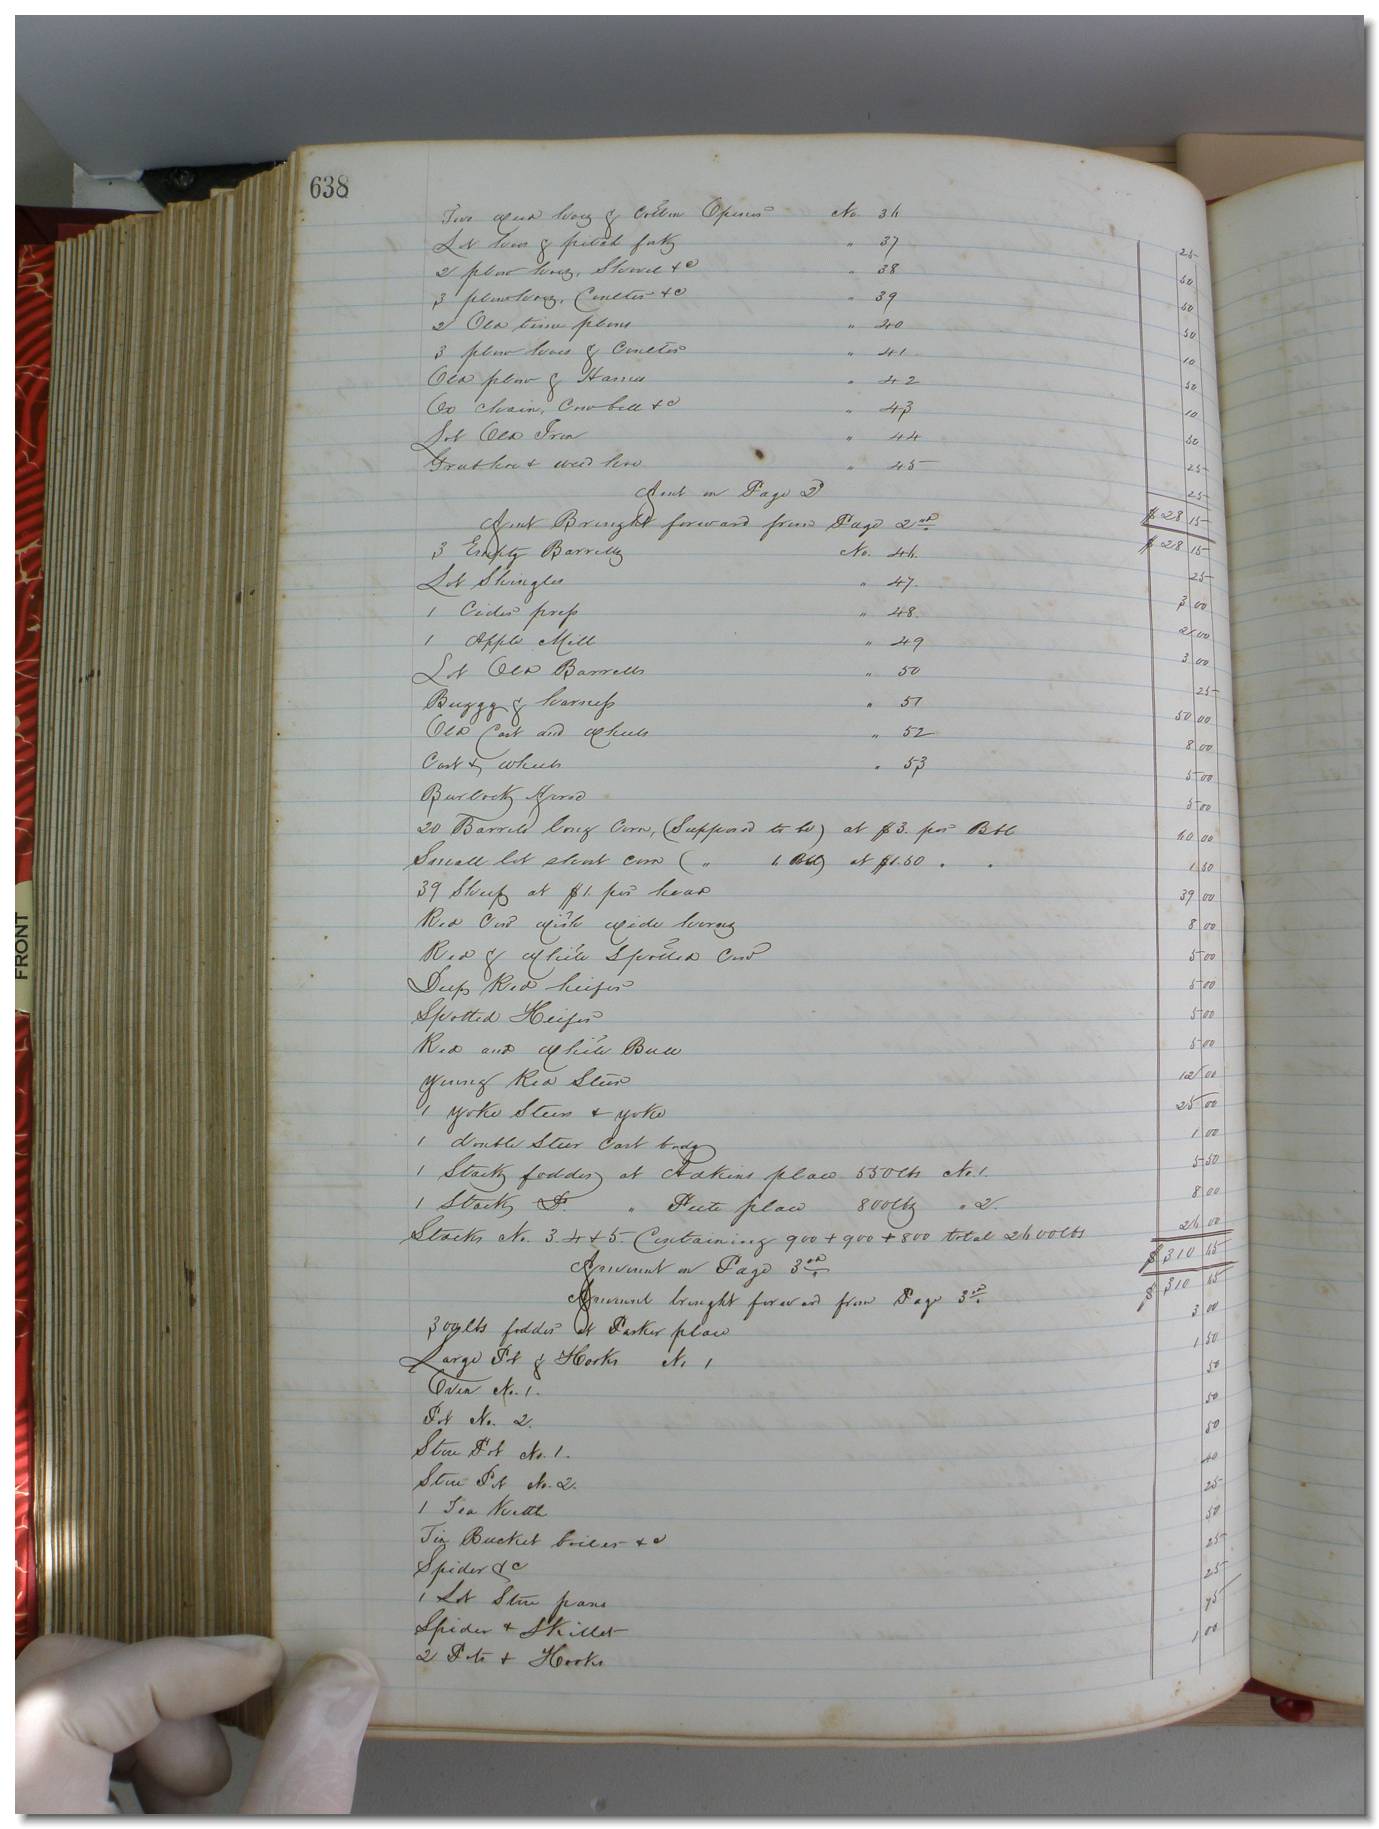 638
Two weed hoes & Cotton Opener No. 36 25
Lot hoes & pitch forks " 37 50
2 plow hoes, Shovel &c " 38 50
3 plow hoes, Coulter &c " 39 50
2 Old time plows " 40 10
3 plow hoes & Coulter " 41 50
Old plow & Hames " 42 10
Ox chain, Cow bell &c " 43 50
Lot Old Iron " 44 25
Grub hoe & weed hoe " 45 25
Amt on Page 2 $28 15
Amt Brought forward from Page 2nd $28 15
3 Empty Barrells No. 46 25
Lot Shingles " 47 3 00
1 Cider press " 48 2 00
1 Apple Mill " 49 3 00
Lot Old Barrells " 50 25
Buggy & harness " 51 50 00
Old Cart and Wheels " 52 8 00
Cart & wheels " 53 5 00
5 00
20 Barrels long Corn, (Supposed to be) at $3. per Bbl 60 00
Small lot short corn ( " 1 Bbl) at $1.50 " " 1 50
39 Sheep at $1. per head 39 00
Red Cow with wide horns 8 00
Red & White Spotted Cow 5 00
Deep Red heifer 5 00
Spotted Heifer 5 00
Red and White Bull 5 00
Young Red Steer 12 00
1 yoke Steers & yoke 25 00
1 double Steer Cart body 1 00
1 Stack fodder at Adkins place 550lbs No. 1. 5 50
1 Stack Do. " place 800lbs " 2. 8 00
Stacks No. 3. 4 & 5. Containing 900 + 900 + 800 total 2600lbs 26 00
Amount on Page 3rd $310 65
Amount brought forward from Page 3rd $310 65
300lbs fodder at Parker place 3 00
Large Pot & Hooks No 1 1 50
Oven No. 1. 50
Pot No. 2. 50
Stew Pot No. 1. 50
Stew Pot No. 2. 40
1 Tea Kettle 25
Tin Bucket boiler &c 50
Spider &c 25
1 Lot Stew pans 25
Spider & Skillet 75
2 Pots & Hooks 1 00
FRONT